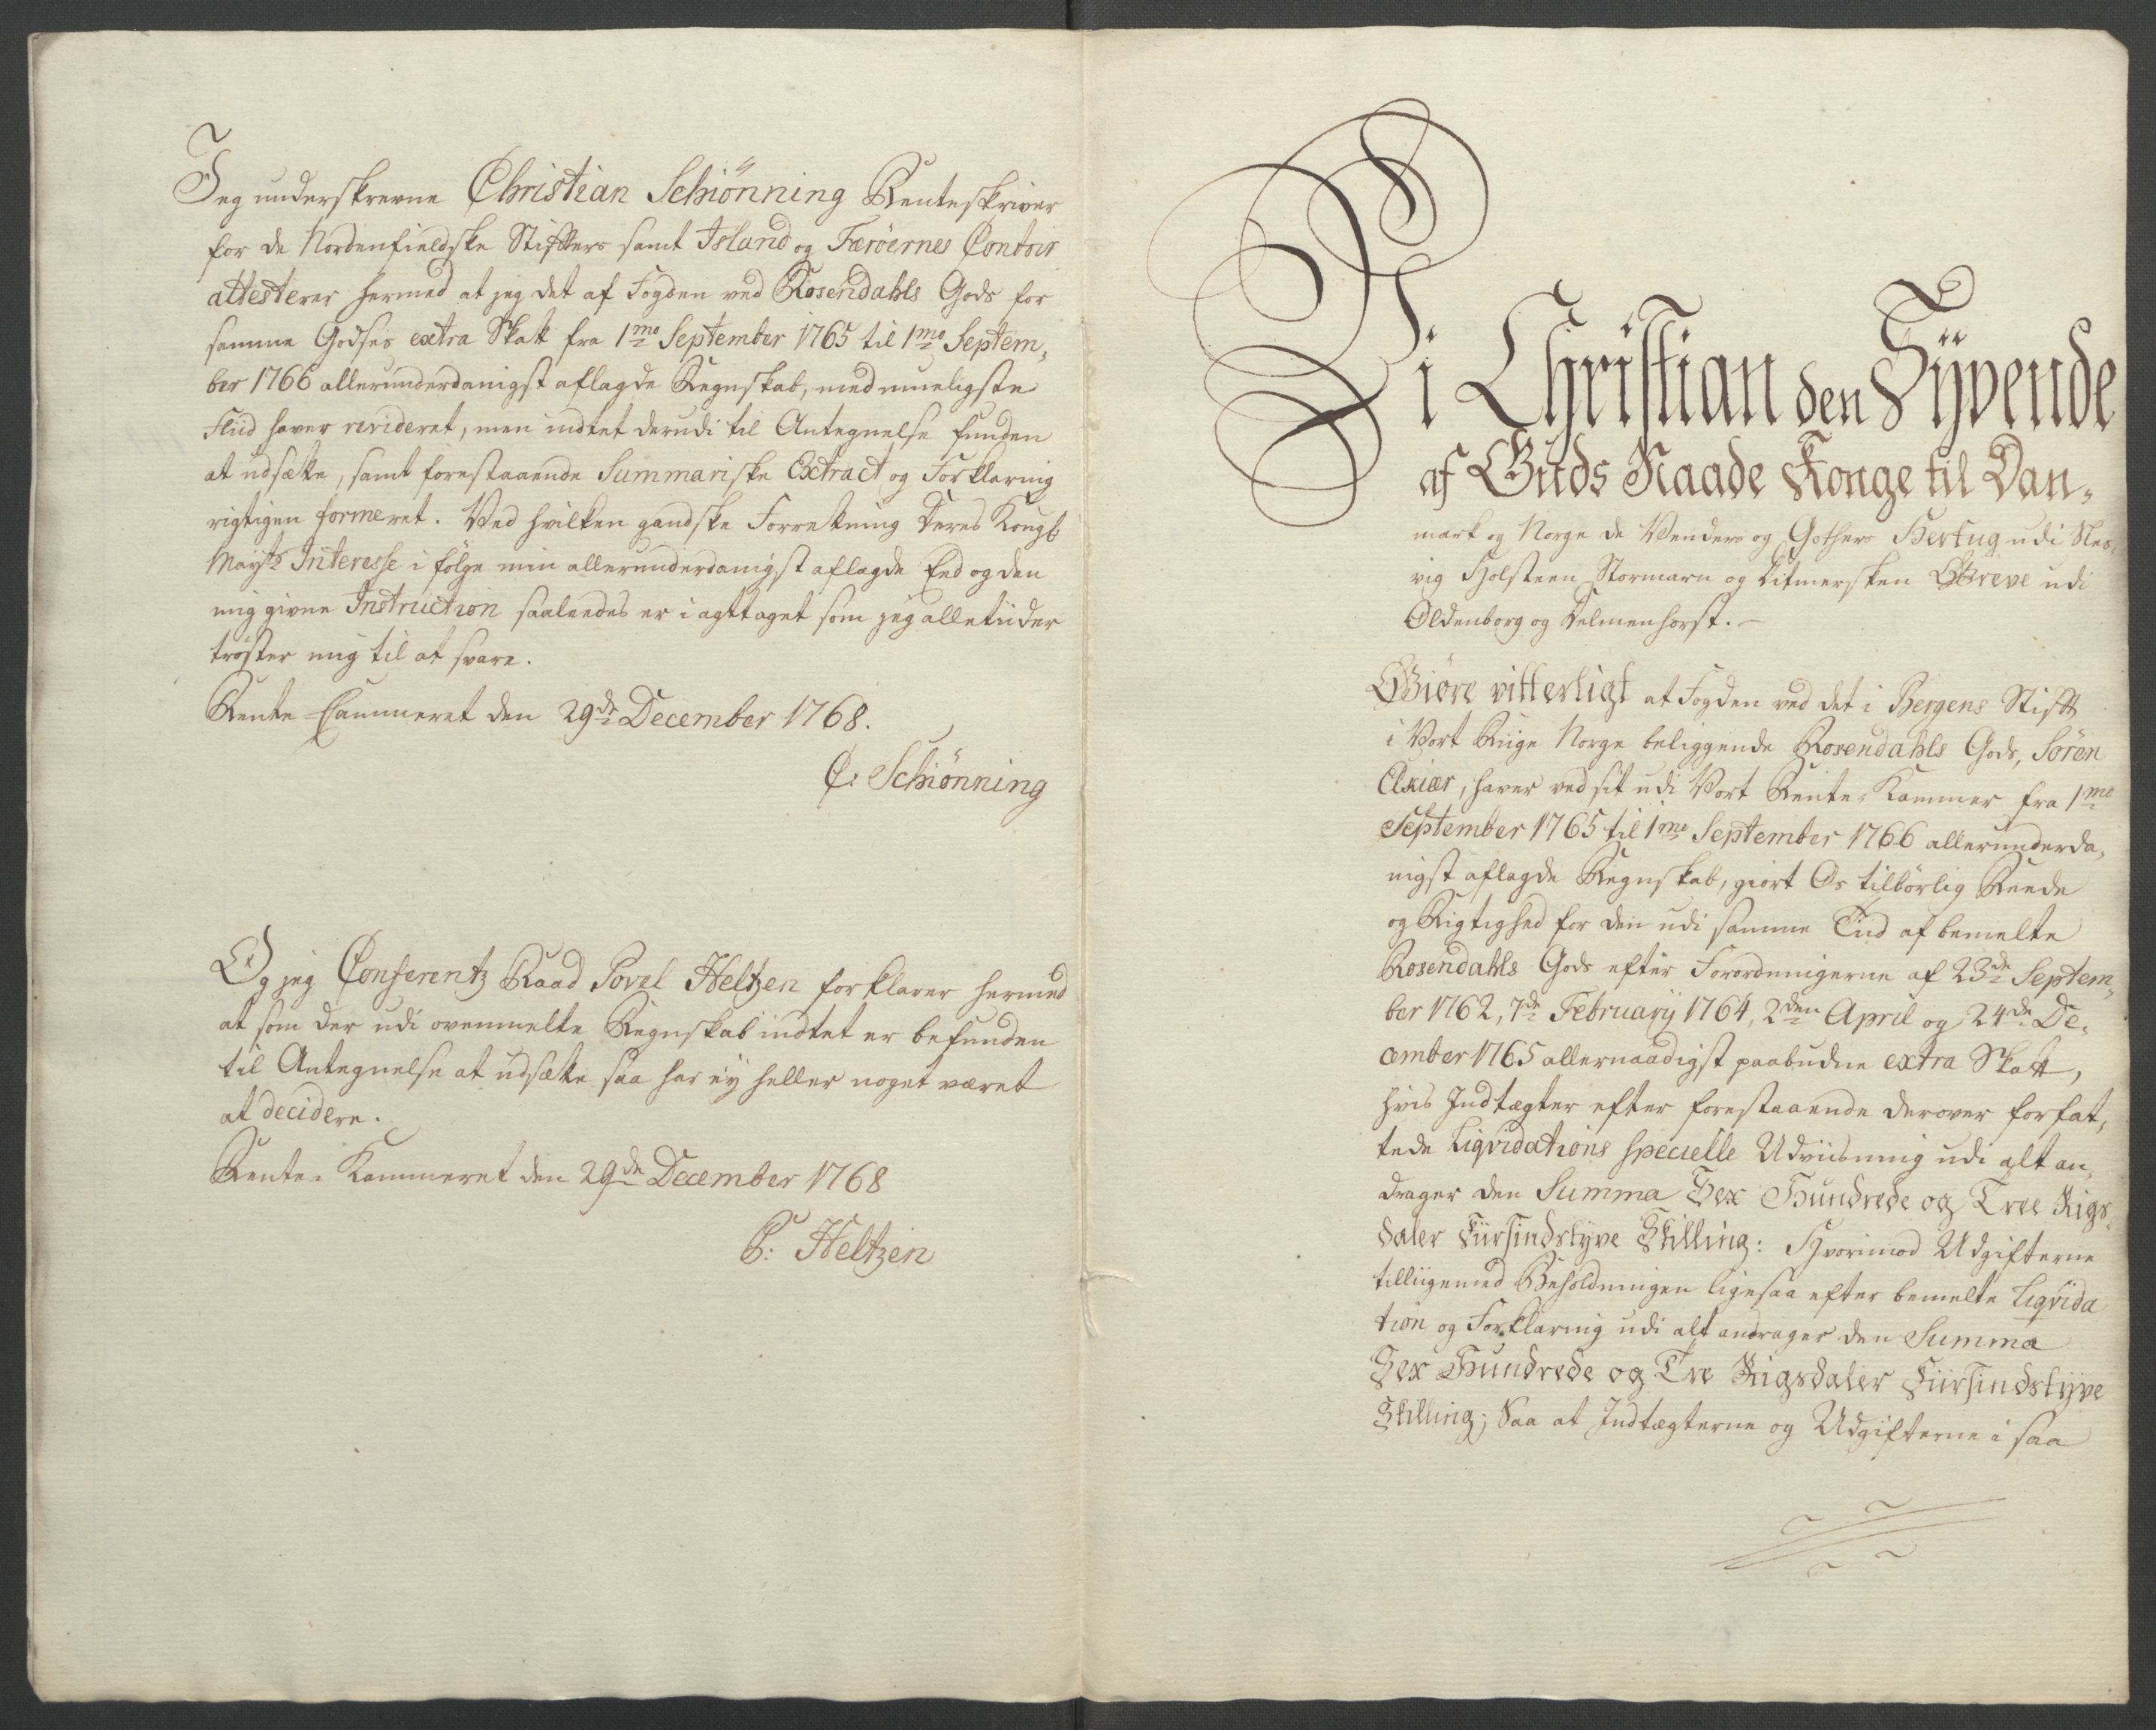 Jeg underskrevne Christian Schiönning Renteskriver
for de Nordenfieldske Stifter samt Island og Færöernes Contoir
attesterer hermed at jeg det af Fogden ved Rosendahls Gods for
samme Godses extra Skatt fra 1mo September 1765 til 1mo Septem,,
ber 1766 allerunderdanigst aflagde Regnskab, med mueligste
Fliid haver revideret, men indtet derudi til Antegnelse funden
at udsætte, samt forestaaende Summariske Extract og Forklaring
rigtigen formeret. Ved hvilken gandske Forretning Deres Kongl
Mayts Interesse i fölge min allerunderdanigst aflagde Eed og den
mig givne Instruction saaledes er i agttaget som jeg alletiider
tröster mig til at svare.
Rente-Cammeret den 29de December 1768.
C: Schiönning
Og jeg Conferentz Raad Povel Heltzen forklarer hermed
at som der udi ovenmelte Regnskab indtet er befunden
til Antegnelse at udsætte saa har ey heller noget været
at decidere.
Rente-Kammeret den 29de December 1768
P: Heltzen
Vi Christian den Syvende
af Guds Naade Konge til Dan,,
mark og Norge de Venders og Gothers Hertug udi Sles,,
vig Holsteen Stormarn og Ditmersken Greve udi
Oldenborg og Delmenhorst.
Giöre vitterligt at Fogden ved det i Bergens Stift
i Vort Riige Norge beliggende Rosendahls Gods, Sören
Elkiær, haver ved sit udi Vort Rente-Kammer fra 1mo
September 1765 til 1mo September 1766 allerunderda,,
nigst aflagde Regnskab, giort Os tilbörlig Reede
og Rigtighed for den udi samme Tiid af bemelte
Rosendahls Gods efter Forordningerne af 23de Septem,,
ber 1762, 7de February 1764, 2den April og 24de De,,
cember 1765 allernaadigst paabudne extra Skatt,
hvis Indtægter efter forestaaende derover forfat,,
tede Liqvidations specielle Udviisning udi alt an,,
drager den Summa Sex Hundrede og Tree Rigs,,
daler Fiirsindstyve Skilling: Hvorimod Udgifterne
tilliigemed Beholdningen ligesaa efter bemelte Liqvida
tion og Forklaring udi alt andrager den Summa
Sex Hundrede og Tre Rigsdaler Fiirsindstyve
Skilling; Saa at Indtægterne og Udgifterne i saa